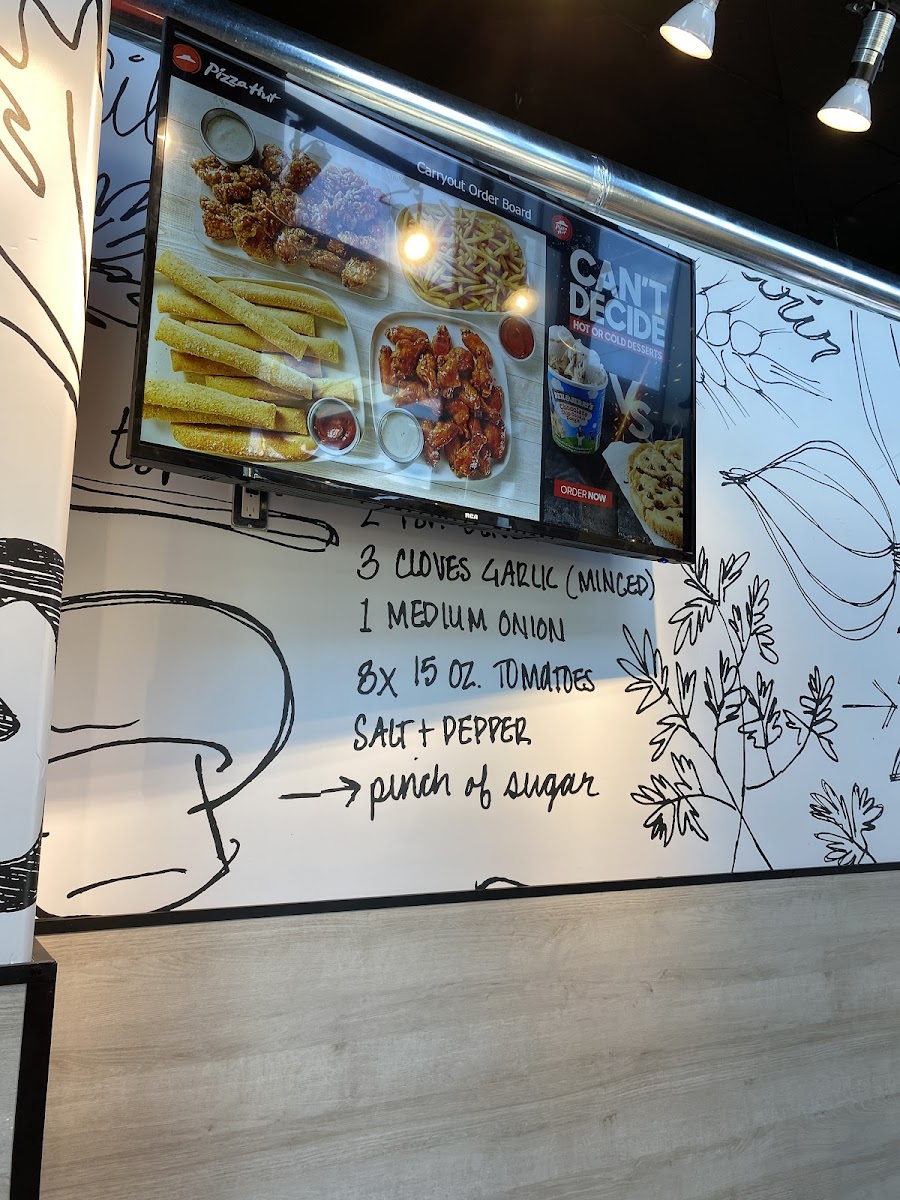 Pizza Hut
Carryout Order Board
Pizza Hut
CAN'T
DECIDE
HOT OR COLD DESSERTS
VS
ORDER NOW
RCA
3 CLOVES GARLIC (MINCED)
1 MEDIUM ONION
8X 15 OZ. TOMATOES
SALT + PEPPER
→ pinch of sugar